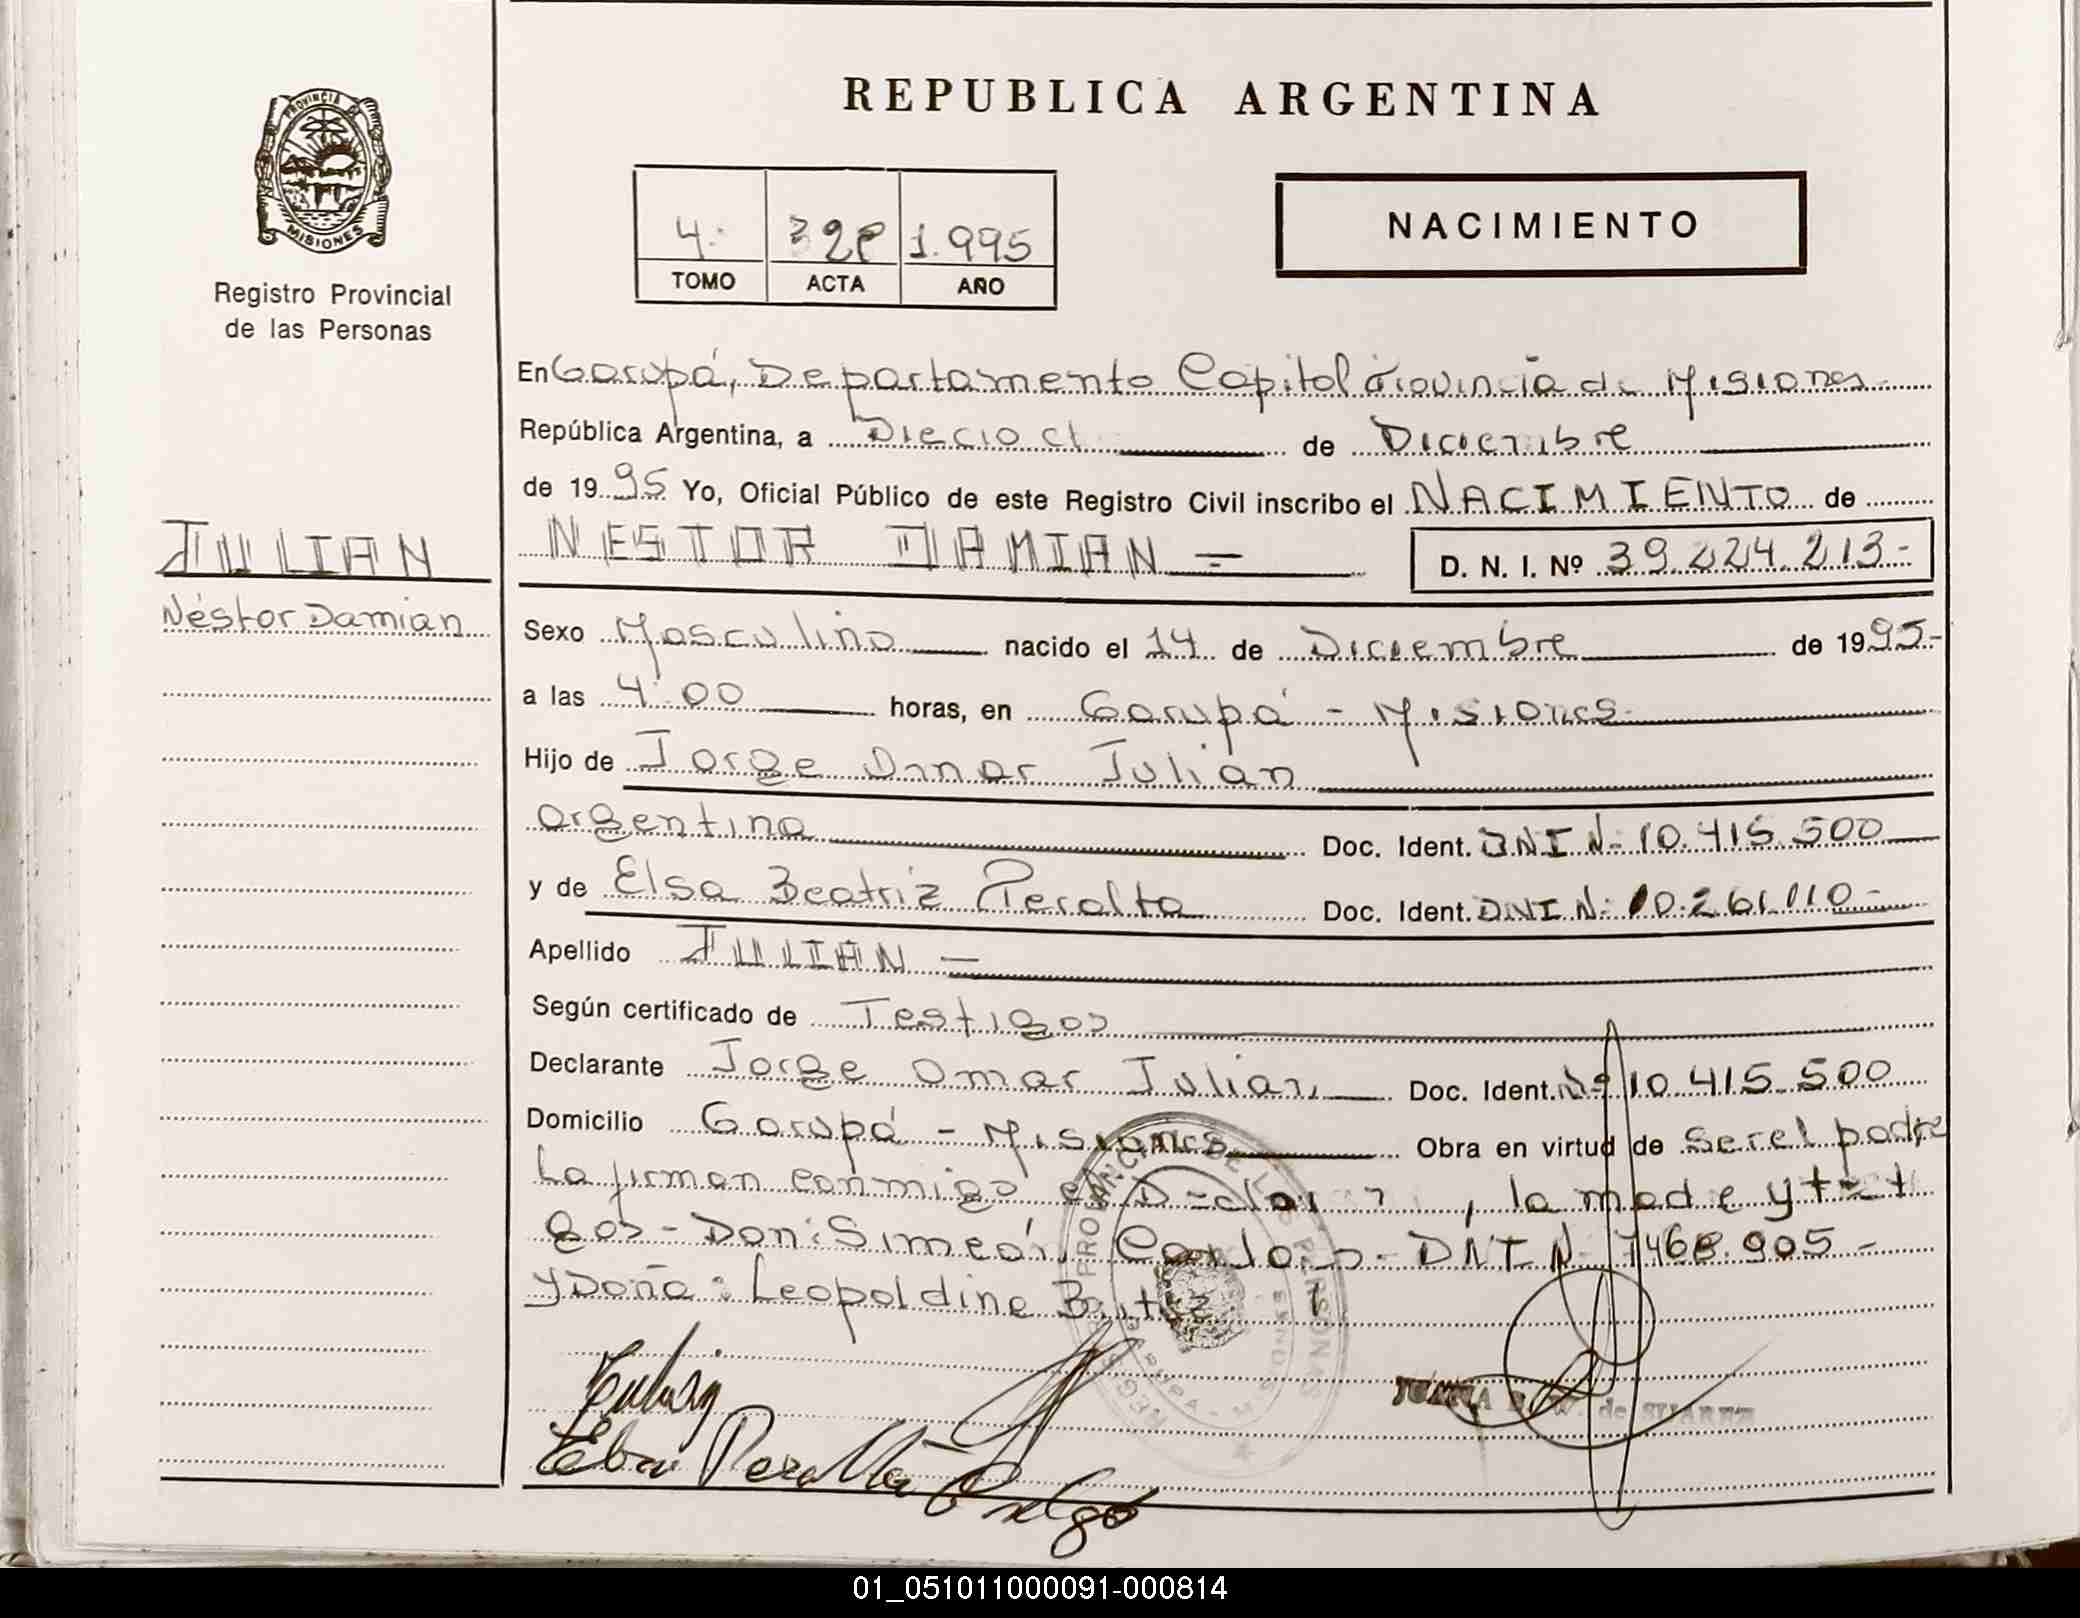 PROVINCIA DE
MISIONES
Registro Provincial
de las Personas
REPUBLICA ARGENTINA
4. 1.995
TOMO ACTA AÑO
NACIMIENTO
En Garupá, Departamento Capital Provincia de Misiones
República Argentina, a Dieciocho de Diciembre
de 1995 Yo, Oficial Público de este Registro Civil inscribo el NACIMIENTO de
JULIAN
NESTOR DAMIAN = D. N. I. Nº 39.224.213.-
Néstor Damian
Sexo Masculino nacido el 14 de Diciembre de 1995.-
a las 4:00 horas, en Garupá - Misiones
Hijo de Jorge Omar Julian
argentina Doc. Ident. DNI Nº 10.415.500
y de Elsa Beatriz Peralta Doc. Ident. DNI Nº 10.261.110-
Apellido JULIAN -
Según certificado de Testigos
Declarante Jorge Omar Julian Doc. Ident. Nº 10.415.500
Domicilio Garupá - Misiones Obra en virtud de ser el padre
La firman conmigo el , la madre y testi
gos - Don: Simeón - DNI Nº 7468.905 -
y Doña: Leopoldina
JUANA B. W. de SUAREZ
Elsa Peralta
01_051011000091-000814